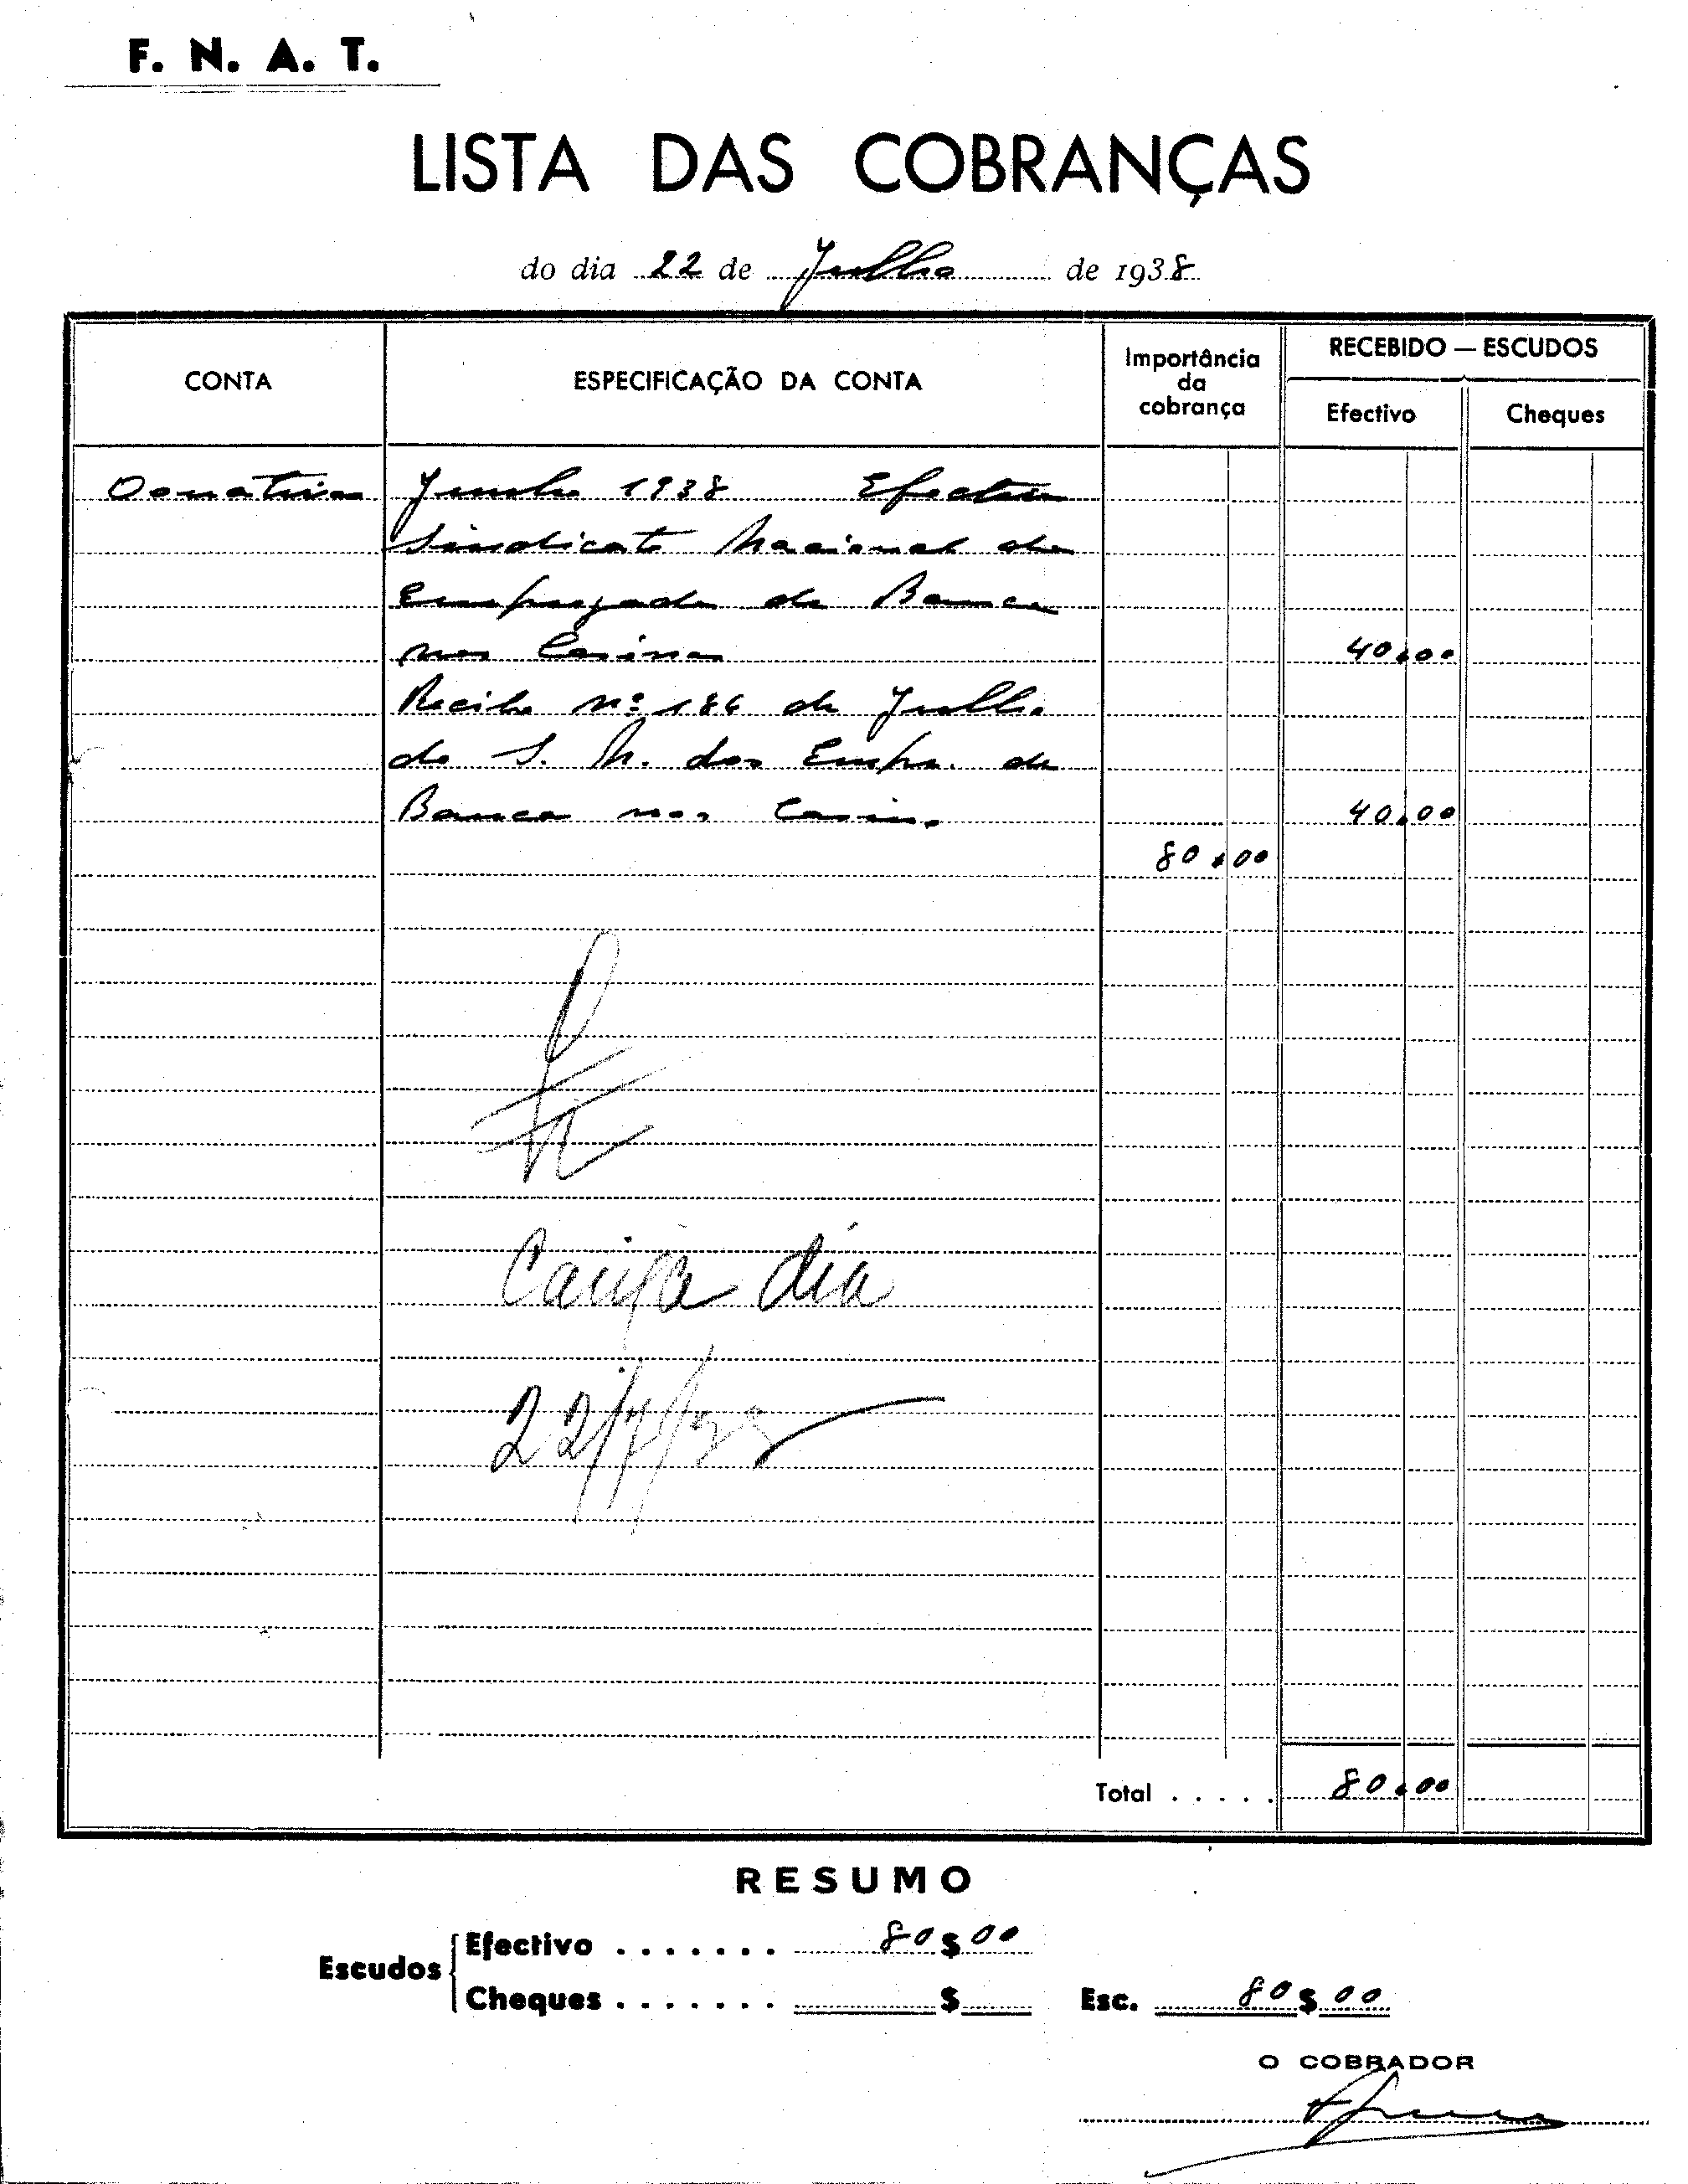 F. N. A. T.
LISTA DAS COBRANÇAS
do dia 22 de Julho de 1938
CONTA
ESPECIFICAÇÃO DA CONTA
Importância
da
cobrança
RECEBIDO — ESCUDOS
Efectivo
Cheques
Donativos Junho 1938
Sindicato Nacional dos
Empregados de Banca
nos Casinos 40.00
Recibo nº 186 de Julho
do S. N. dos Emp. de
Banca nos Casinos 40.00
80.00
Caixa dia
22/7/38
Total . . . . . 80.00
RESUMO
Escudos
Efectivo . . . . . . . 80$00
Cheques . . . . . . . $
Esc. 80$00
O COBRADOR